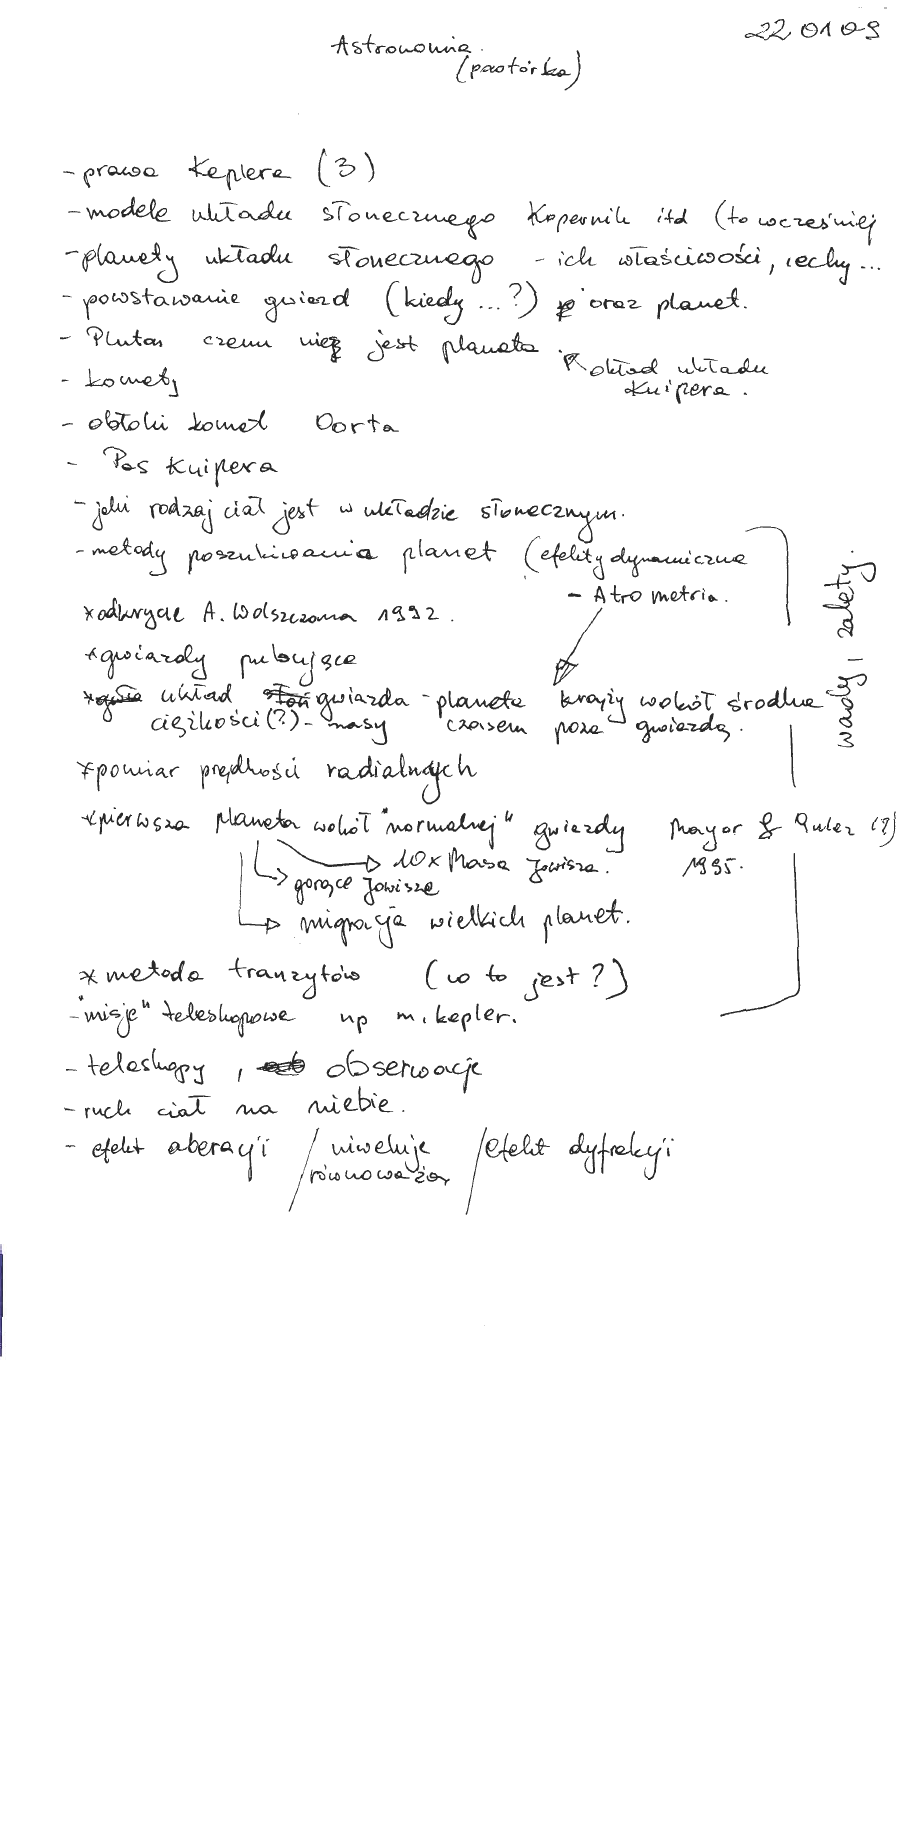 22 01 09
Astronomia.
(powtórka)
- prawa Keplera (3)
- modele układu słonecznego Kopernik itd (to wcześniej
- planety układu słonecznego - ich właściwości, cechy...
- powstawanie gwiazd (kiedy ...?) oraz planet.
- Pluton czemu nie jest planetą.
okład układu
Kuipera.
- komety
- obłoki komet Oorta
- Pas Kuipera
- jaki rodzaj ciał jest w układzie słonecznym.
- metody poszukiwania planet (efekty dynamiczne
- Atrometria.
wady i zalety.
* odkrycie A. Wolszczana 1992.
* gwiazdy pulsujące
* układ gwiazda - planeta krąży wokół środka
ciężkości(?) - masy czasem poza gwiazdą.
* pomiar prędkości radialnych
* pierwsza planeta wokół "normalnej" gwiazdy Mayor & Qulez (?)
1995.
→ 10x Masa Jowisza.
→ gorące Jowisze
→ migracja wielkich planet.
* metoda tranzytów (co to jest?)
- "misje" teleskopowe np m. kepler.
- teleskopy, obserwacje
- ruch ciał na niebie.
- efekt aberacji / niweluje / efekt dyfrakcji
równoważy